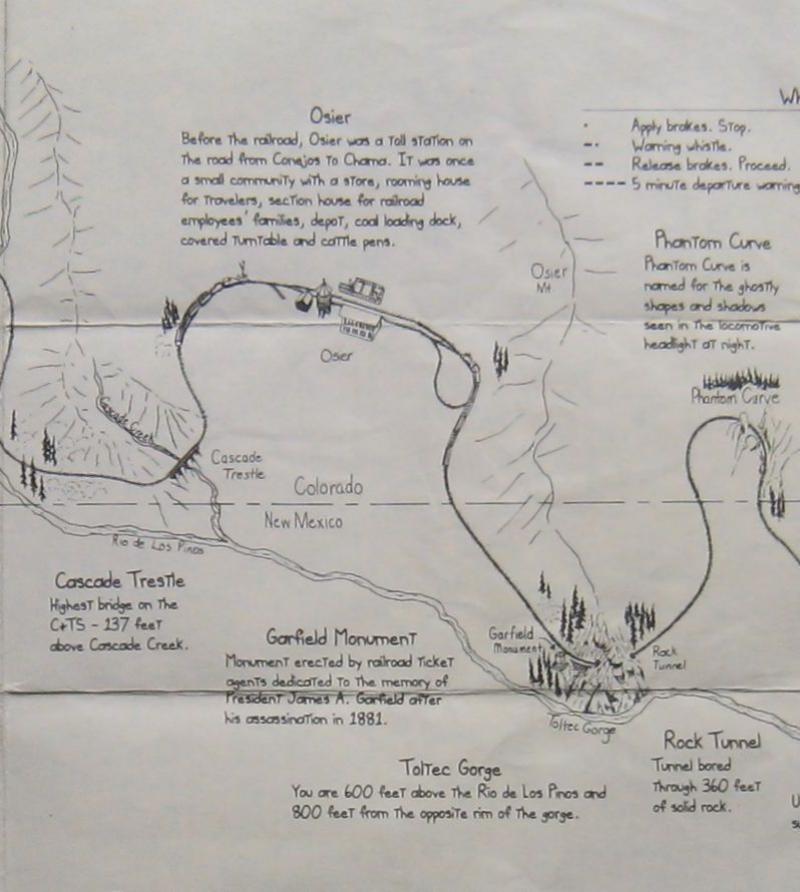 Wh
Apply brakes. Stop.
Warning whistle.
Release brakes. Proceed.
5 minute departure warning
Osier
Before the railroad, Osier was a toll station on
the road from Conejos to Chama. It was once
a small community with a store, rooming house
for travelers, section house for railroad
employees' families, depot, coal loading dock,
covered turntable and cattle pens.
Phantom Curve
Phantom Curve is
named for the ghostly
shapes and shadows
seen in the locomotive
headlight at night.
Osier
Mt
Osier
Phantom Curve
Cascade Creek
Cascade
Trestle
Colorado
New Mexico
Rio de Los Pinos
Cascade Trestle
Highest bridge on the
C&TS - 137 feet
above Cascade Creek.
Garfield Monument
Monument erected by railroad ticket
agents dedicated to the memory of
President James A. Garfield after
his assassination in 1881.
Garfield
Monument
Rock
Tunnel
Toltec Gorge
Rock Tunnel
Tunnel bored
through 360 feet
of solid rock.
Toltec Gorge
You are 600 feet above the Rio de Los Pinos and
800 feet from the opposite rim of the gorge.